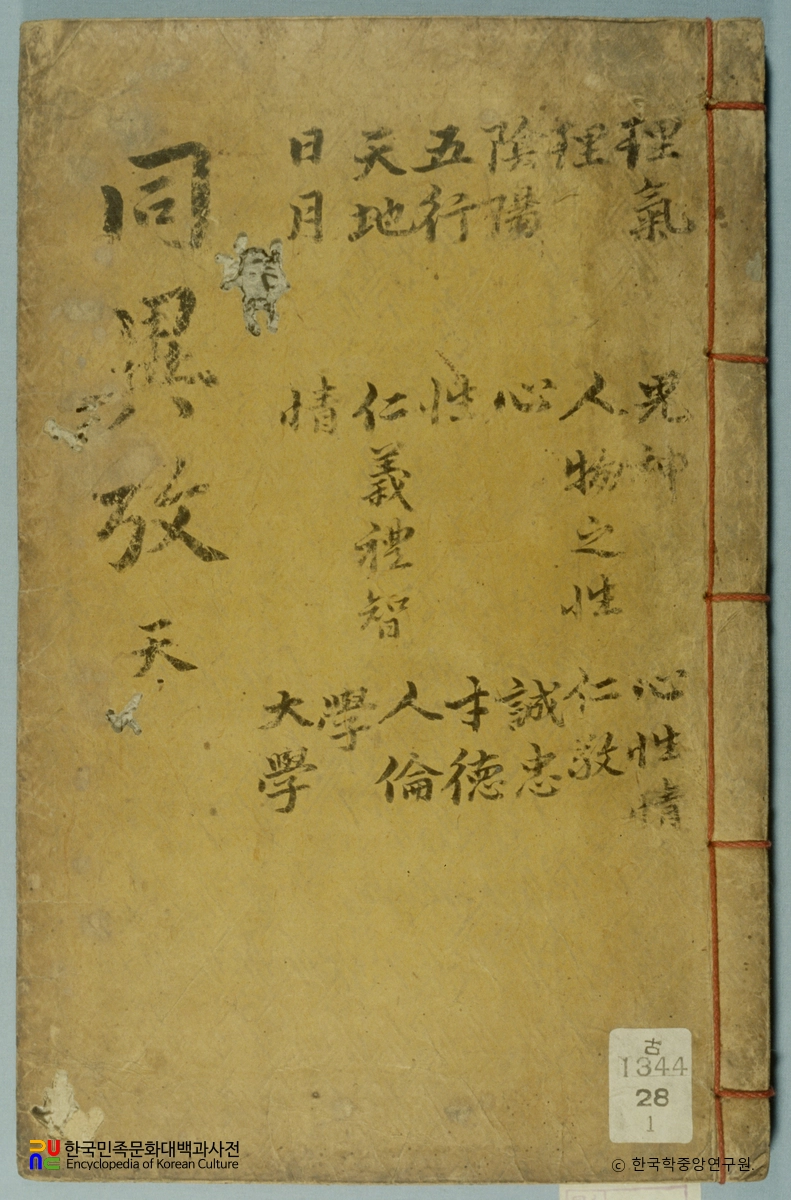 理氣
理
陰陽
五行
天地
日月
鬼神
人物之性
心
性
仁義禮智
情
心性情
仁敬
誠忠
才德
人倫
學
大學
同異攷 天
古
1344
28
1
한국민족문화대백과사전
Encyclopedia of Korean Culture
© 한국학중앙연구원